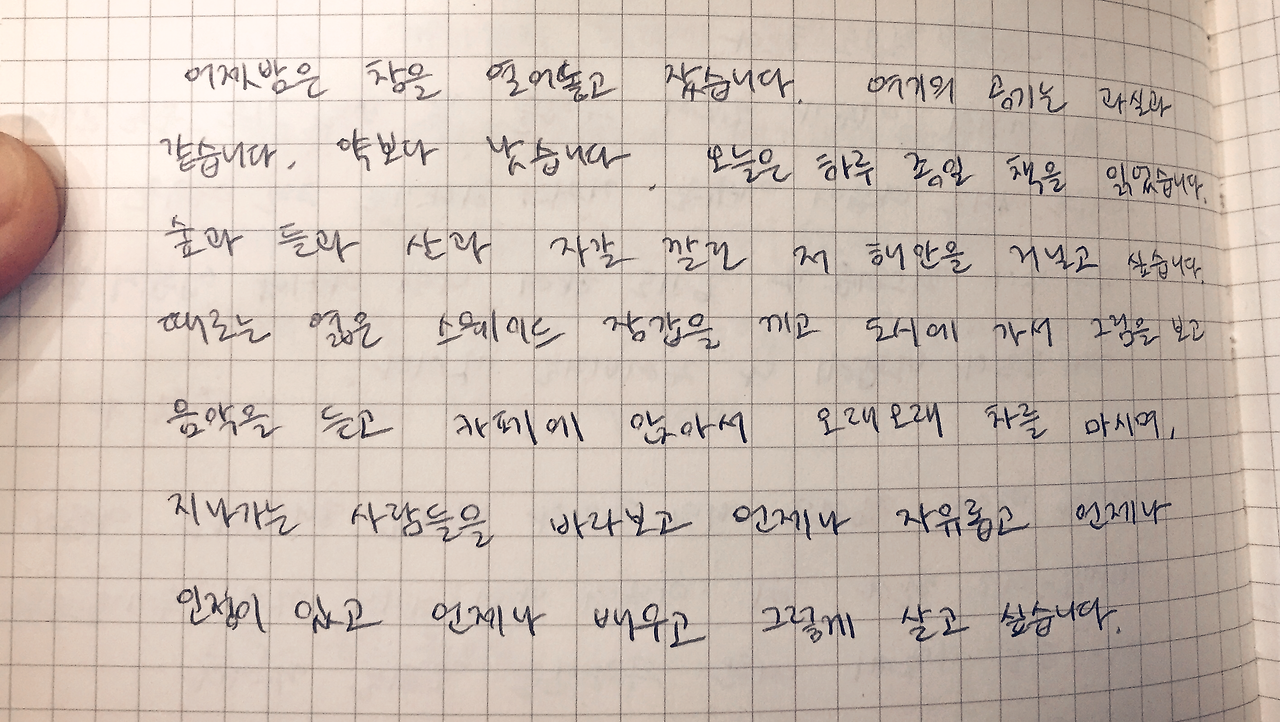 어젯밤은 창을 열어놓고 잤습니다. 여기의 공기는 과실과
같습니다. 약보다 낫습니다. 오늘은 하루 종일 책을 읽었습니다.
숲과 들과 산과 자갈 깔린 저 해안을 거닐고 싶습니다.
때로는 엷은 스웨이드 장갑을 끼고 도시에 가서 그림을 보고
음악을 듣고 차페에 앉아서 오래오래 차를 마시며,
지나가는 사람들을 바라보고 언제나 자유롭고 언제나
인정이 있고 언제나 배우고 그렇게 살고 싶습니다.